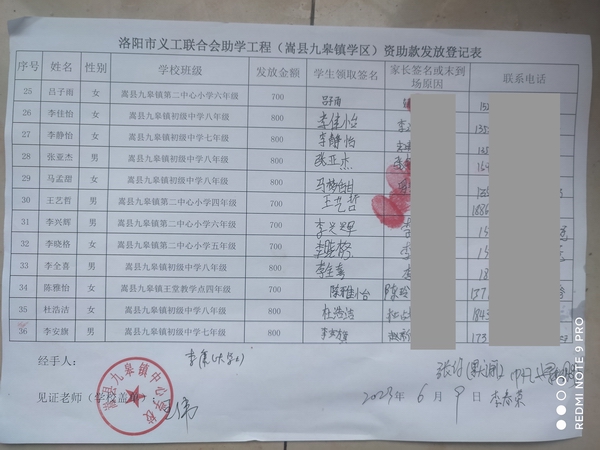 洛阳市义工联合会助学工程（嵩县九皋镇学区）资助款发放登记表
序号 姓名 性别 学校班级 发放金额 学生领取签名 家长签名或未到场原因 联系电话
25 吕子雨 女 嵩县九皋镇第二中心小学六年级 700 吕子雨 15
26 李佳怡 女 嵩县九皋镇初级中学八年级 800 李佳怡 李 135
27 李静怡 女 嵩县九皋镇初级中学七年级 800 李静怡
28 张亚杰 男 嵩县九皋镇初级中学八年级 800 张亚杰
29 马孟甜 女 嵩县九皋镇初级中学八年级 800 马梦甜
30 王艺哲 男 嵩县九皋镇第二中心小学四年级 700 王艺哲 1886
31 李兴辉 男 嵩县九皋镇第二中心小学六年级 700 15
32 李晓格 女 嵩县九皋镇第二中心小学五年级 700 李晓格 李 15
33 李全喜 男 嵩县九皋镇初级中学八年级 800 18
34 陈雅怡 女 嵩县九皋镇王堂教学点四年级 700 陈雅怡 157
35 杜浩洁 女 嵩县九皋镇初级中学八年级 800 杜浩洁 杜 184
36 李安旗 男 嵩县九皋镇初级中学七年级 800 李安旗 173
经手人：
见证老师（学校盖章）
嵩县九皋镇中心学校
2023年 6 月 9 日 李春荣
REDMI NOTE 9 PRO